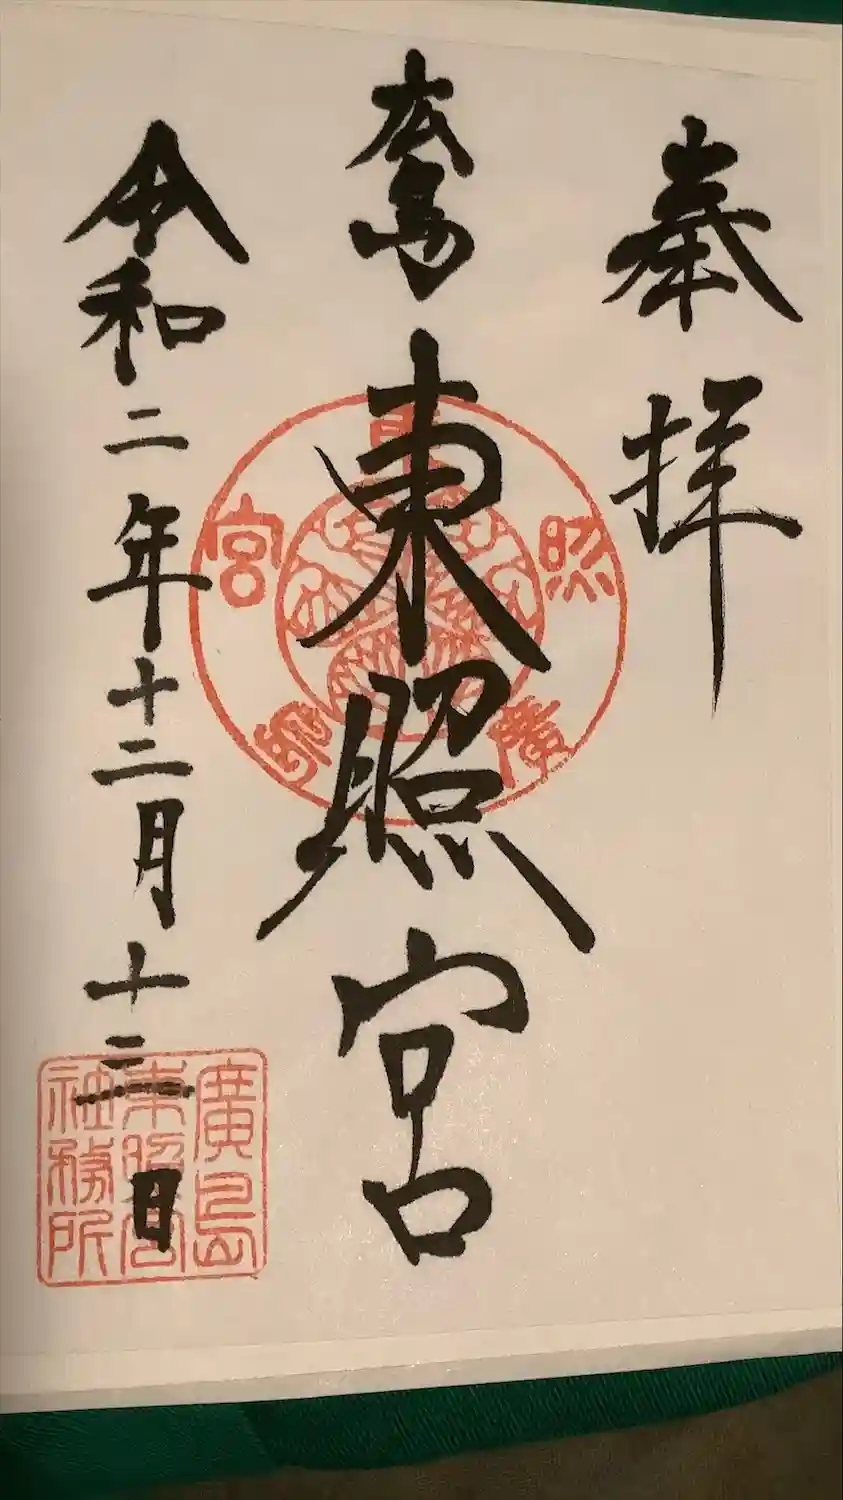 奉拝
広島
東照宮
廣島東照宮
令和二年十二月十三日
廣島
東照宮
社務所